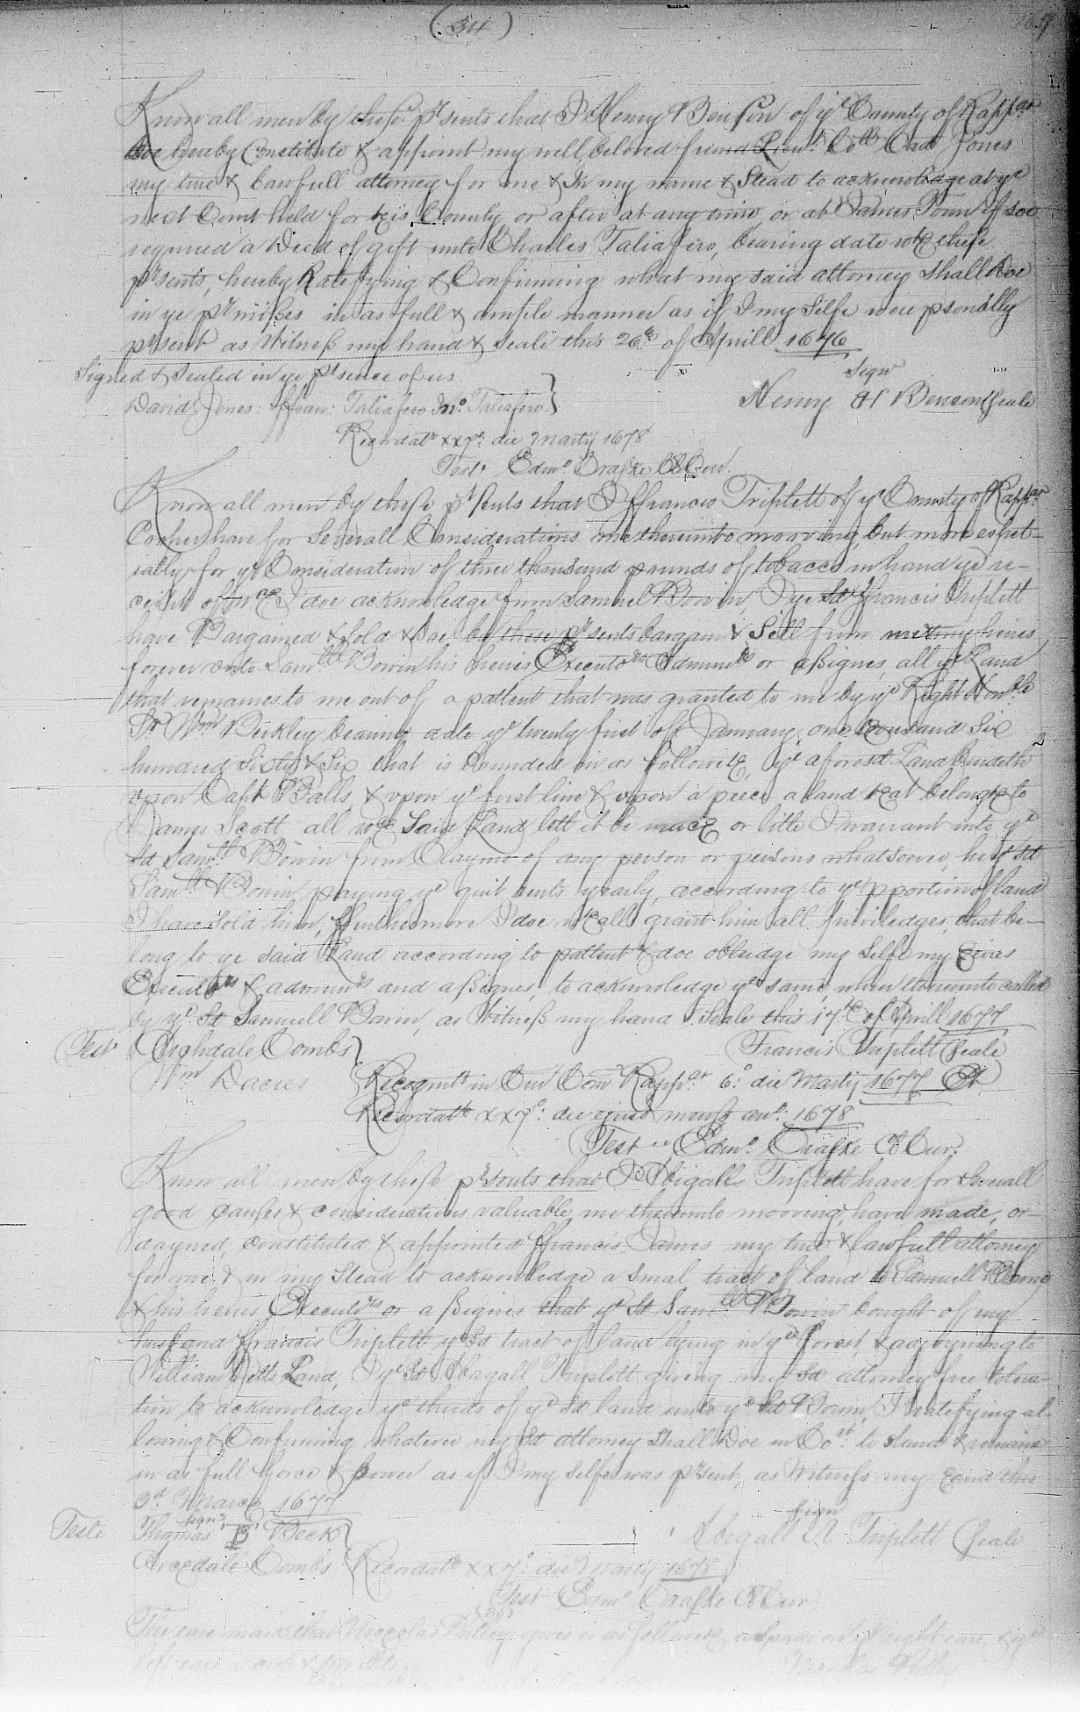 (34)
Know all men by these prsents that I Henry Benson of ye County of Rappar
doe hereby Constitute & appoint my well beloved friend Lieut. Coll Cad Jones
my true & Lawfull attorney for me & In my name & Stead to acknowledge at ye
next Court held for this County or after at any time, or at James Town if soe
required a Deed of gift unto Charles Taliafero, bearing date wth these
prsents, hereby Ratifying & Confirming what my said attorney Shall Doe
in ye prmises in as full & ample manner as if I my Selfe were psonally
prsent as Witness my hand & Seale this 26th of Aprill 1676
Signed & Sealed in ye prsence of us
Signe
David Jones: ffran: Taliafero Jno. Taliafero}
Henry H Benson Seale
Recordatr xx7o: die Martij 1678
Test Edmo Craske Cl Cur.
Know all men by these prsents that I ffrancis Triplett of ye County of Rappar
have for Severall Considerations me thereunto mooving but more espet-
ially for ye Consideration of three thousand pounds of tobacco in hand ye re-
ceipt of wch I doe acknowledge from Samuel Bowin, I ye sd ffrancis Triplett
have Bargained & Sold & doe by these prsents bargain & Sell from me & my heires
forever unto Samll Bowin his heires Executors Adminrs or assignes, all ye Land
that remaines to me out of a pattent that was granted to me by ye Right Honble
Sr Wm Berkley bearing date ye twenty first of January, one thousand Six
hundred Sixty & Six that is bounded in as followeth, ye aforesd Land bindeth
upon Capt Balls, & upon ye first line & upon a peece a land that belongs to
James Scott all wch Said Land, lett it be much or little I warrant unto ye
sd Samll Bowin from Clayme of any person or persons whatsoever, he ye sd
Samll Bowin paying ye quit rents yearly, according to ye pportion of land
I have Sold him, ffurthermore I doe grant him all priviledges, that be-
long to ye said Land according to pattent & doe obleidge my Selfe my heires
Executrs & adminrs and assignes, to acknowledge ye same, when thereunto called
by ye Sd Samuell Bowin, as Witness my hand & Seale this 17th of Aprill 1677
Test Archdale Combs}
Francis Triplett Seale
Wm Davies
Recognitr in Cur Com Rappar 6o: die Martij 1677
Recordatr xx7o: die ejusd mensis ano: 1678
Test Edmo. Craske Cl Cur.
Know all men by these prsents that I Abigall Triplett have for Severall
good causes & considerations valuable, me thereunto mooving, have made, or-
dayned, constituted & appointed ffrancis James my true & lawfull attorney
for me & in my Stead to acknowledge a smal tract of land to Samuell Bowin
& his heires Executrs or assignes that ye Sd Samll Bowin bought of my
husband ffrancis Triplett ye Sd tract of land lying in ye forest & adjoyning to
William Land, I ye Sd Abagall Triplett giving my Sd attorney free tolera-
tion to acknowledge ye thirds of ye Sd land unto ye Sd Bowin, I ratifying al-
lowing & Confirming whatever my Sd attorney Shall Doe in Cort to stand & remaine
in as full force & power as if I my Selfe was prsent, as Witness my hand this
3d March 1677
Teste Thomas B Beck}
signe
Abigall Triplett Seale
Archdale Combs
Recordatr xx7o: die Martij 1678
Test Edmo Craske Cl Cur
The eare mark that Nicholas gives is as followeth, a Spade on ye right eare, & ye
left eare